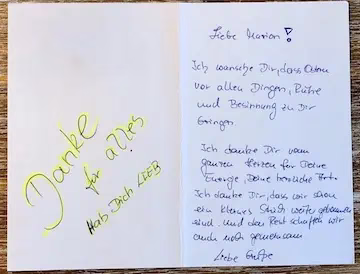 Danke
für alles
Hab Dich LIEB
Liebe Marion!
Ich wünsche Dir, dass Ostern
vor allen Dingen, Ruhe
und Besinnung zu Dir
bringen.
Ich danke Dir vom
ganzen Herzen für Deine
Energie, Deine herzliche
Ich danke Dir, dass wir schon
ein kleines Stück weiter gekommen
sind und den Rest schaffen wir
auch noch gemeinsam.
Liebe Grüße